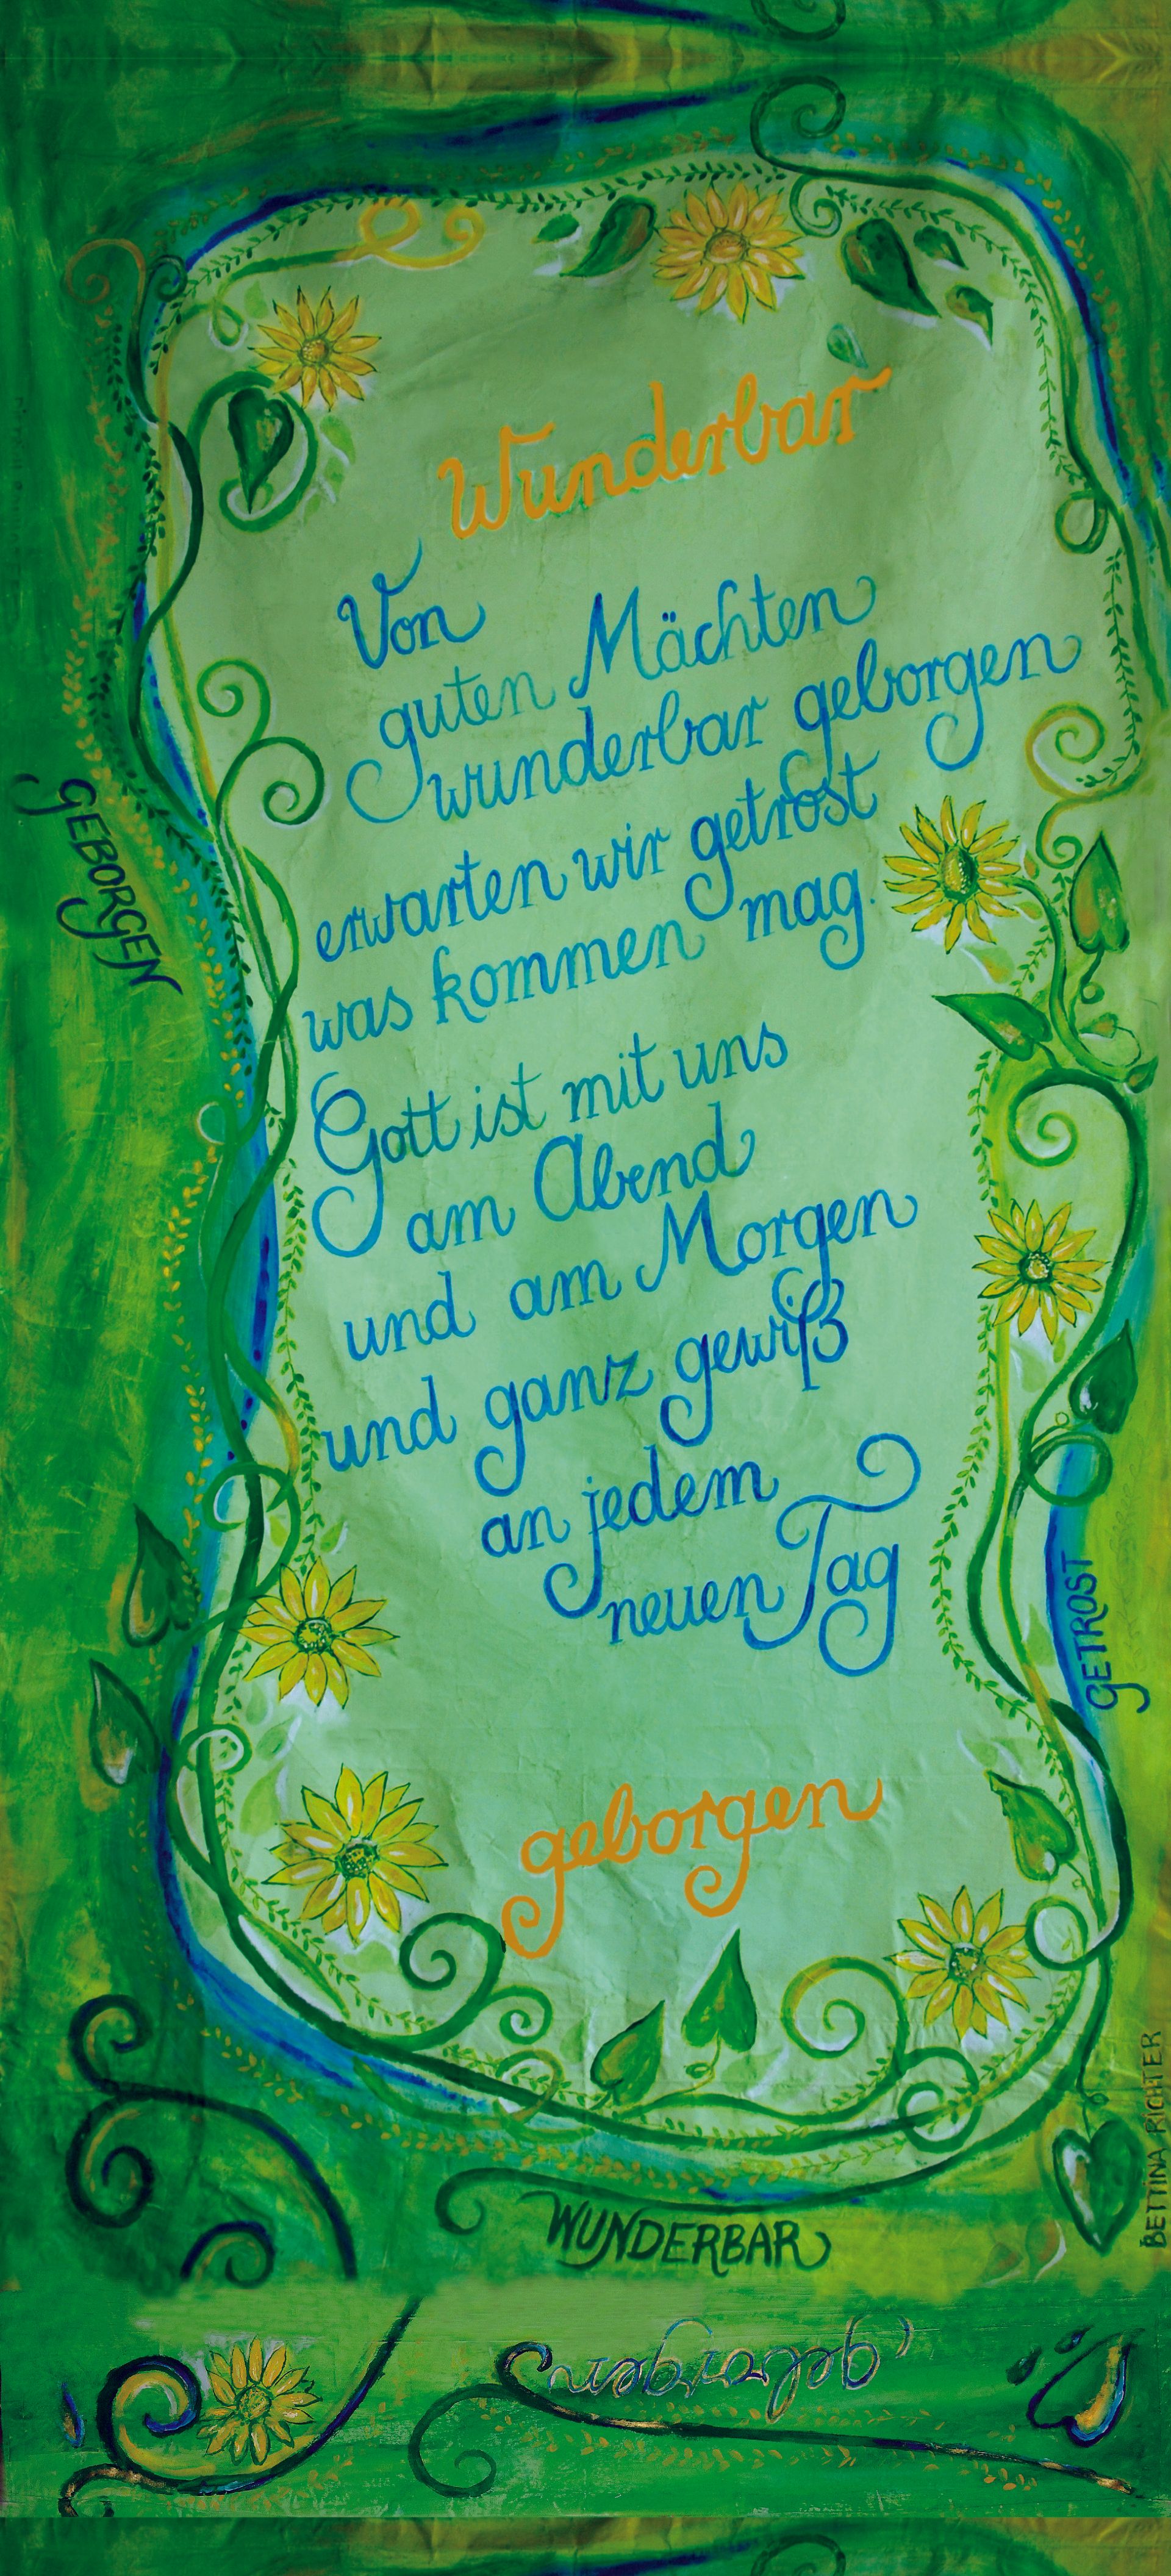 Wunderbar
Von
guten Mächten
wunderbar geborgen
erwarten wir getrost
was kommen mag.
Gott ist mit uns
am Abend
und am Morgen
und ganz gewiß
an jedem
neuen Tag
geborgen
GEBORGEN
GETROST
WUNDERBAR
BETTINA RICHTER
geborgen